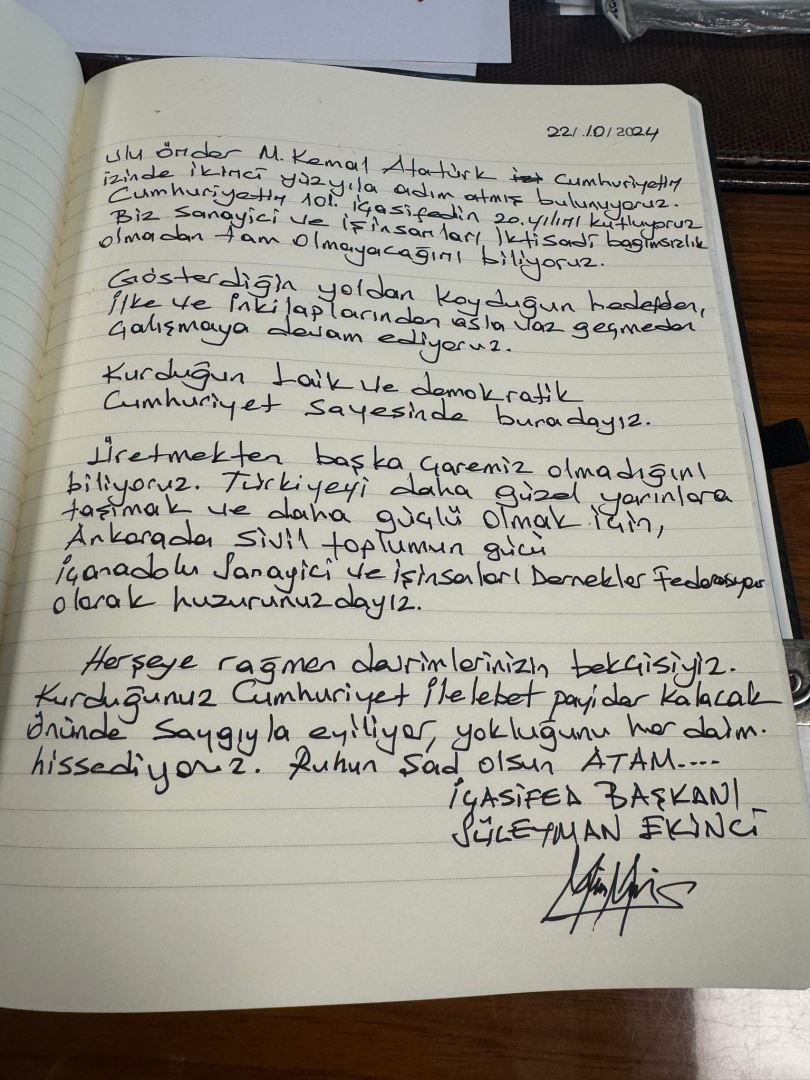 22/10/2024
Ulu önder M. Kemal Atatürk Cumhuriyetin
izinde ikinci yüzyıla adım atmış bulunuyoruz.
Cumhuriyetin 101. içasifedin 20. yılını kutluyoruz
Biz sanayici ve işinsanları, İktisadi bağımsızlık
olmadan tam olmayacağını biliyoruz.
Gösterdiğin yoldan koyduğun hedefden,
ilke ve inkilaplarından asla vaz geçmeden
Çalışmaya devam ediyoruz.
Kurduğun Laik ve demokratik
Cumhuriyet sayesinde buradayız.
Üretmekten başka çaremiz olmadığını
biliyoruz. Türkiyeyi daha güzel yarınlara
taşımak ve daha güçlü olmak için,
Ankarada sivil toplumun gücü
içanadolu Sanayici ve işinsanları Dernekler Federasyonu
olarak huzurunuzdayız.
Herşeye rağmen devrimlerinizin bekçisiyiz.
Kurduğunuz Cumhuriyet ilelebet payidar kalacak
önünde saygıyla eyiliyor, yokluğunu her daim.
hissediyoruz. Ruhun şad olsun ATAM....
İÇASİFED BAŞKANI
SÜLEYMAN EKİNCİ